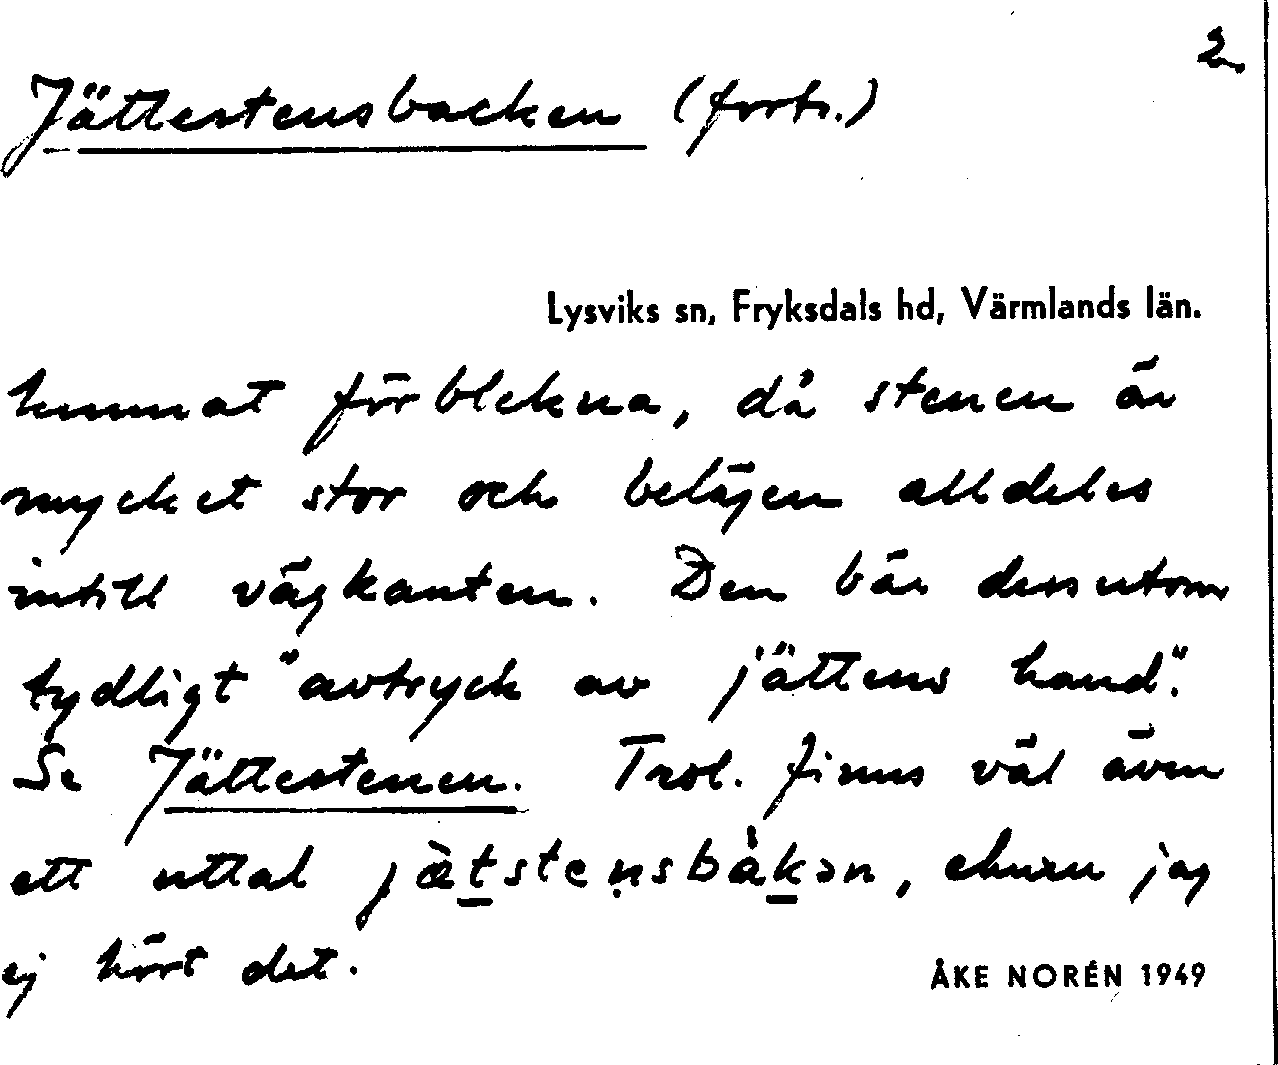 2
Jättestensbacken (forts.)
Lysviks sn, Fryksdals hd, Värmlands län.
kunnat förblekna, då stenen är
mycket stor och belägen alldeles
intill vägkanten. Den bär dessutom
tydligt "avtryck av jättens hand".
Se Jättestenen. Trol. finns väl även
ett uttal jätstensbakən, ehuru jag
ej hört det.
ÅKE NORÉN 1949